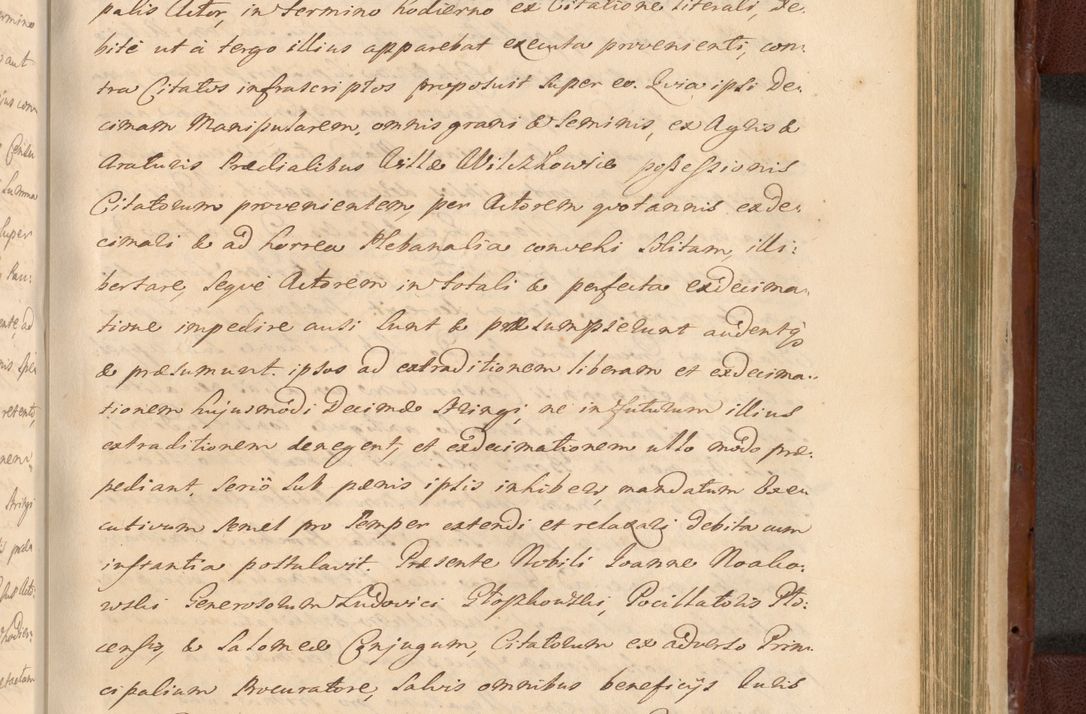 palis Actor, in termino hodierno ex Citatione literali, de-
bitè ut à tergo illius apparebat executa provenienti, con-
tra Citatos infrascriptos proposuit super eo. Quia ipsi De-
cimam Manipularem, omnis grani & seminis, ex Agris &
Araturis Prædialibus Villæ Wilczkowice possessionis
Citatorum provenientem, per Actorem quotannis exde-
cimari & ad horrea Plebanalia convehi solitam, illi-
bertare, seque Actorem in totali & perfecta exdecima-
tione impedire ausi sunt & præsumpserunt audentq;
& præsumunt. ipsos ad extraditionem liberam et exdecima-
tionem hujusmodi Decimæ stringi, ne in futurum illius
extraditionem denegent, et exdecimationem ullo modo præ-
pediant, seriò sub pænis ipsis inhiberi, mandatum Exe-
cutivum semel pro semper extendi et relaxari debita cum
instantia postulavit. Præsente Nobili Joanne Noako-
wski Generosorum Ludovici Ptoszkowski, Pocillatoris Plo-
censis, & Salomeæ Conjugum, Citatorum ex adverso Prin-
cipalium Procuratore, salvis omnibus beneficijs Juris